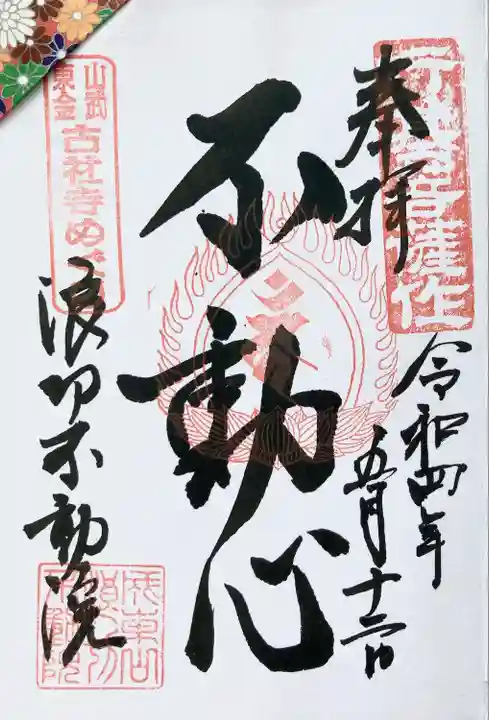 奉拝
令和四年
五月十二日
不動心
山武
東金
古社寺めぐ
浪切不動院